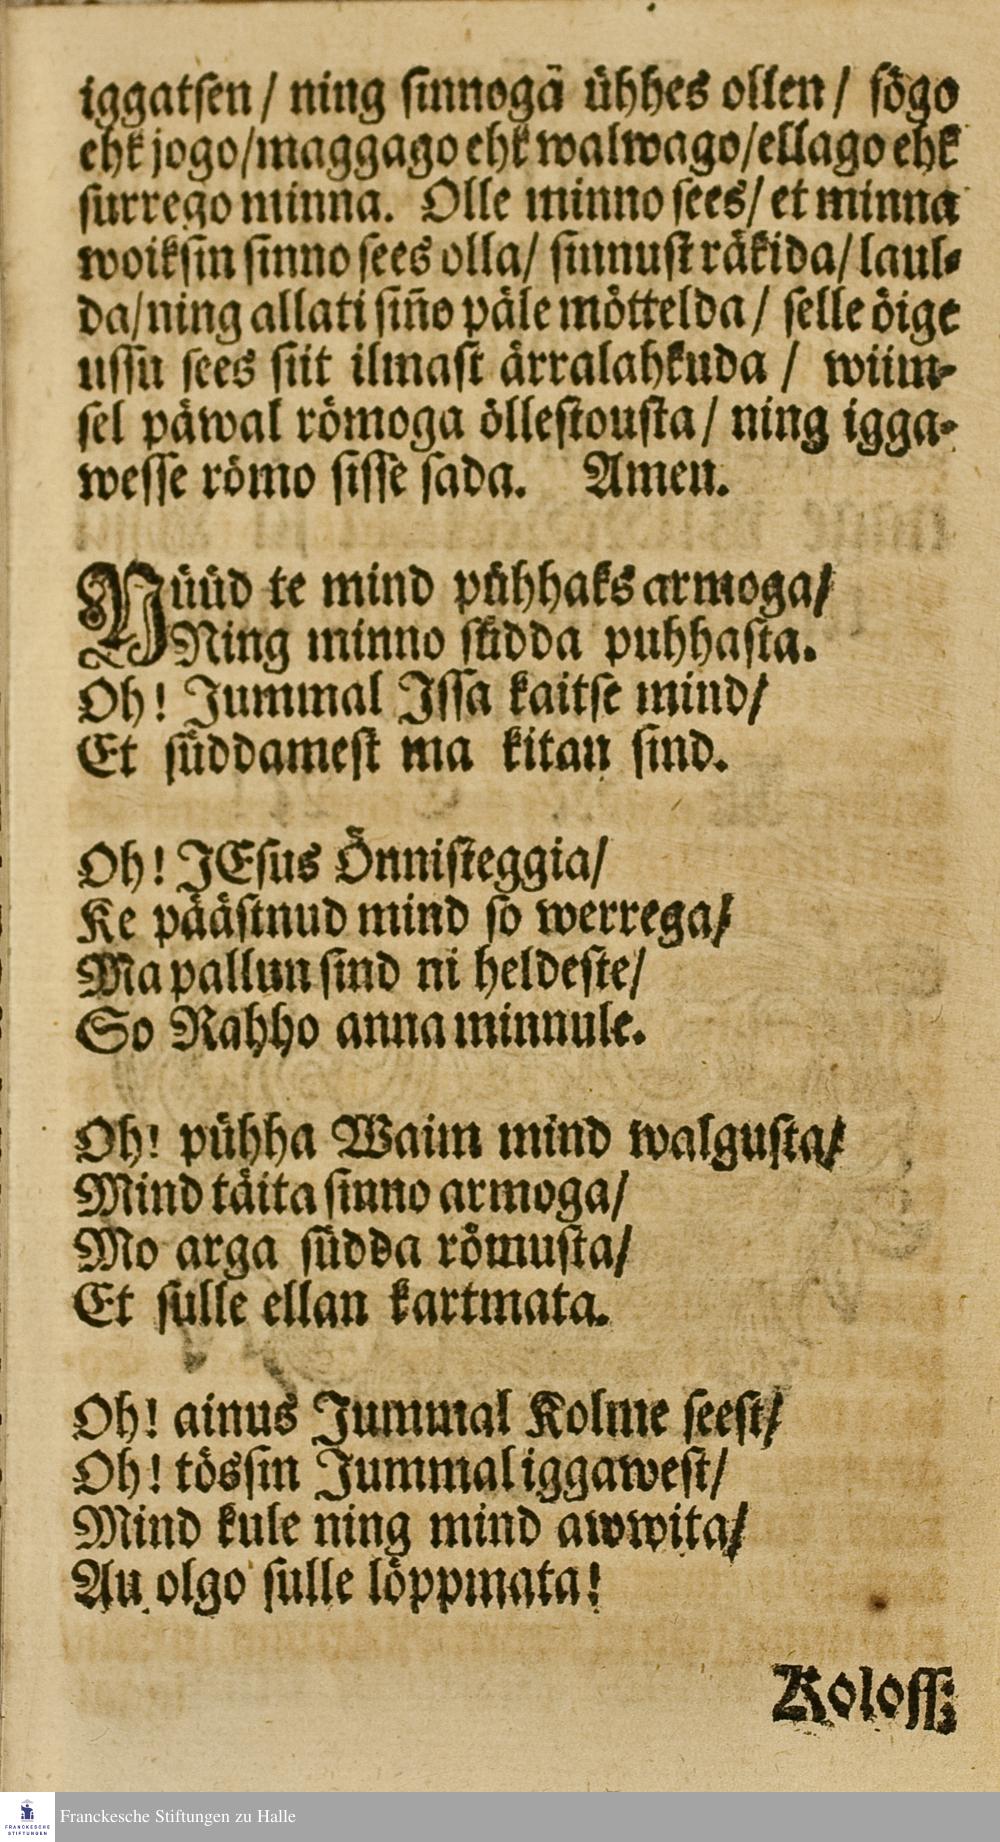 iggatsen / ning sinnogä ühhes ollen / sögo
ehk jogo/maggago ehk walwago/ellago ehk
surrego minna. Olle minno sees/ et minna
woiksin sinno sees olla/ sinnust räkida/ laul-
da/ning allati sin̄o päle möttelda / selle öige
ussu sees siit ilmast ärralahkuda / wiim-
sel päwal römoga öllestousta/ ning igga-
wesse römo sisse sada. Amen.
Nüüd te mind pühhaks armoga/
Ning minno südda puhhasta.
Oh! Jummal Issa kaitse mind/
Et süddamest ma kitan sind.
Oh! JEsus Önnisteggia/
Ke päästnud mind so werrega/
Ma pallun sind ni heldeste/
So Rahho anna minnule.
Oh! pühha Waim mind walgusta/
Mind täita sinno armoga/
Mo arga südda römusta/
Et sulle ellan kartmata.
Oh! ainus Jummal Kolme seest/
Oh! tössin Jummal iggawest/
Mind kule ning mind awwita/
Au olgo sulle löppmata!
Koloss:
Franckesche Stiftungen zu Halle
FRANCKESCHE
STIFTUNGEN